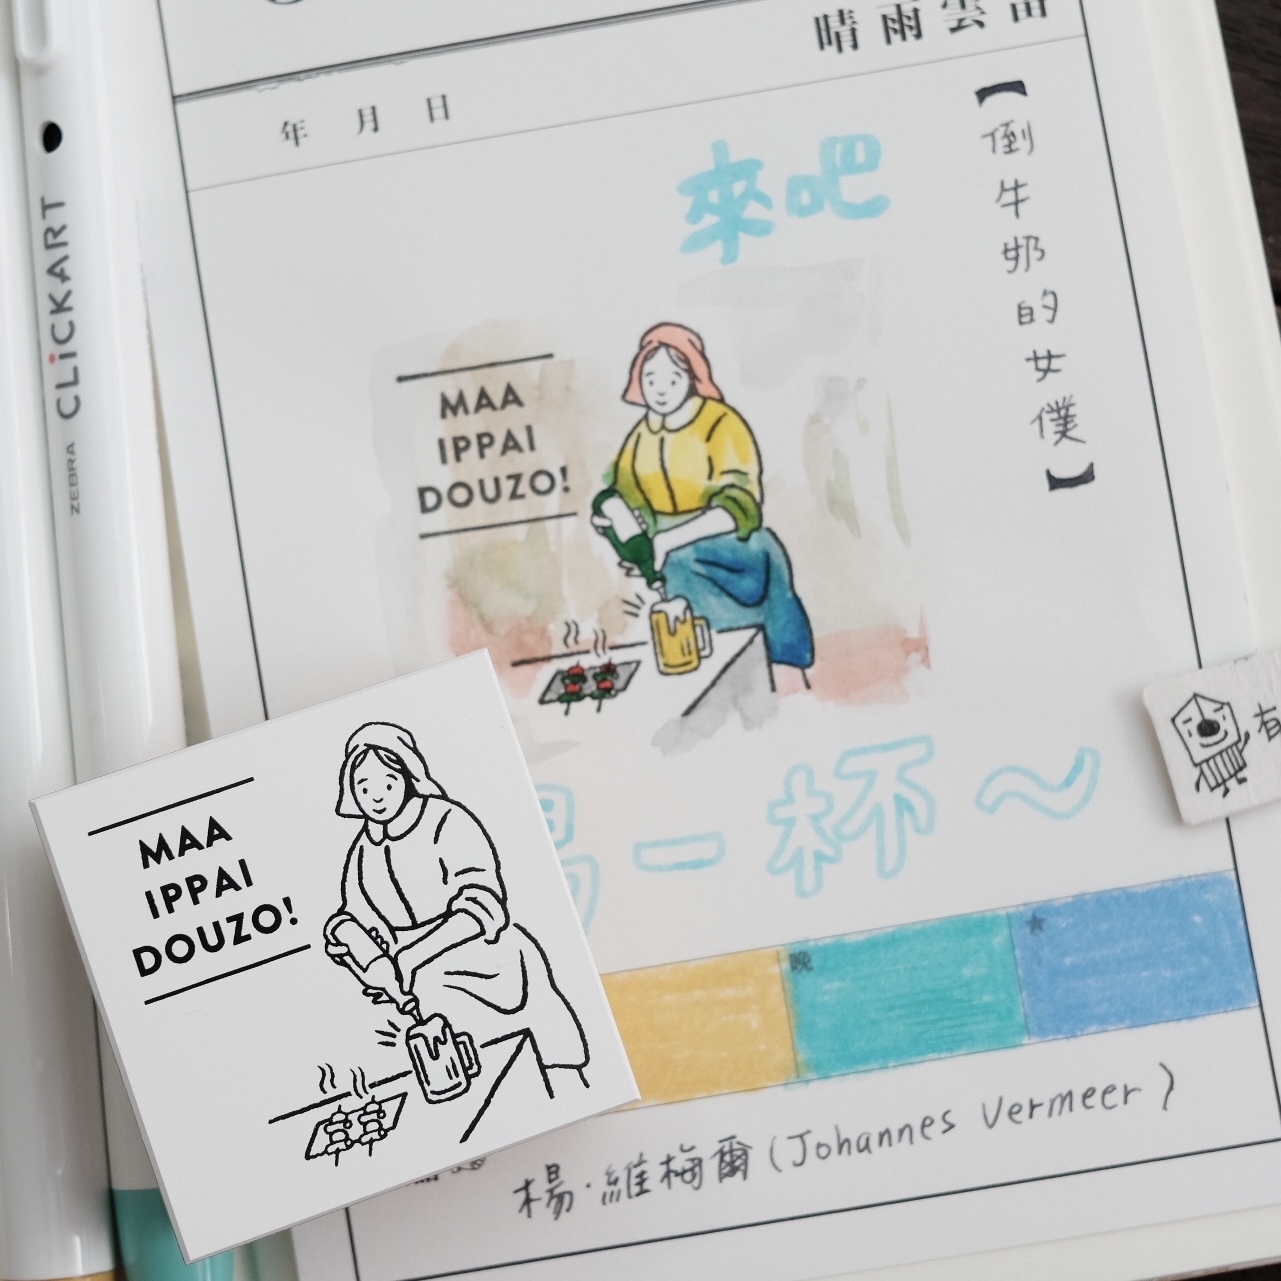 晴雨雲雷
年 月 日
【倒牛奶的女僕】
來吧
MAA
IPPAI
DOUZO!
喝一杯~
晚
★
楊·維梅爾(Johannes Vermeer)
MAA
IPPAI
DOUZO!
ZEBRA CLiCKART
有